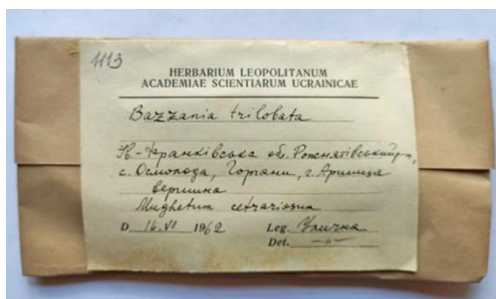 1113
HERBARIUM LEOPOLITANUM
ACADEMIAE SCIENTIARUM UCRAINICAE
Bazzania trilobata
Ів-Франківська обл. Рожнятівський р-н,
с. Осмолода, Горгани, г. Аршиця
вершина
Mughetum cetrariosum
D 16.VII 1962 Leg. Улична
Det. —"—